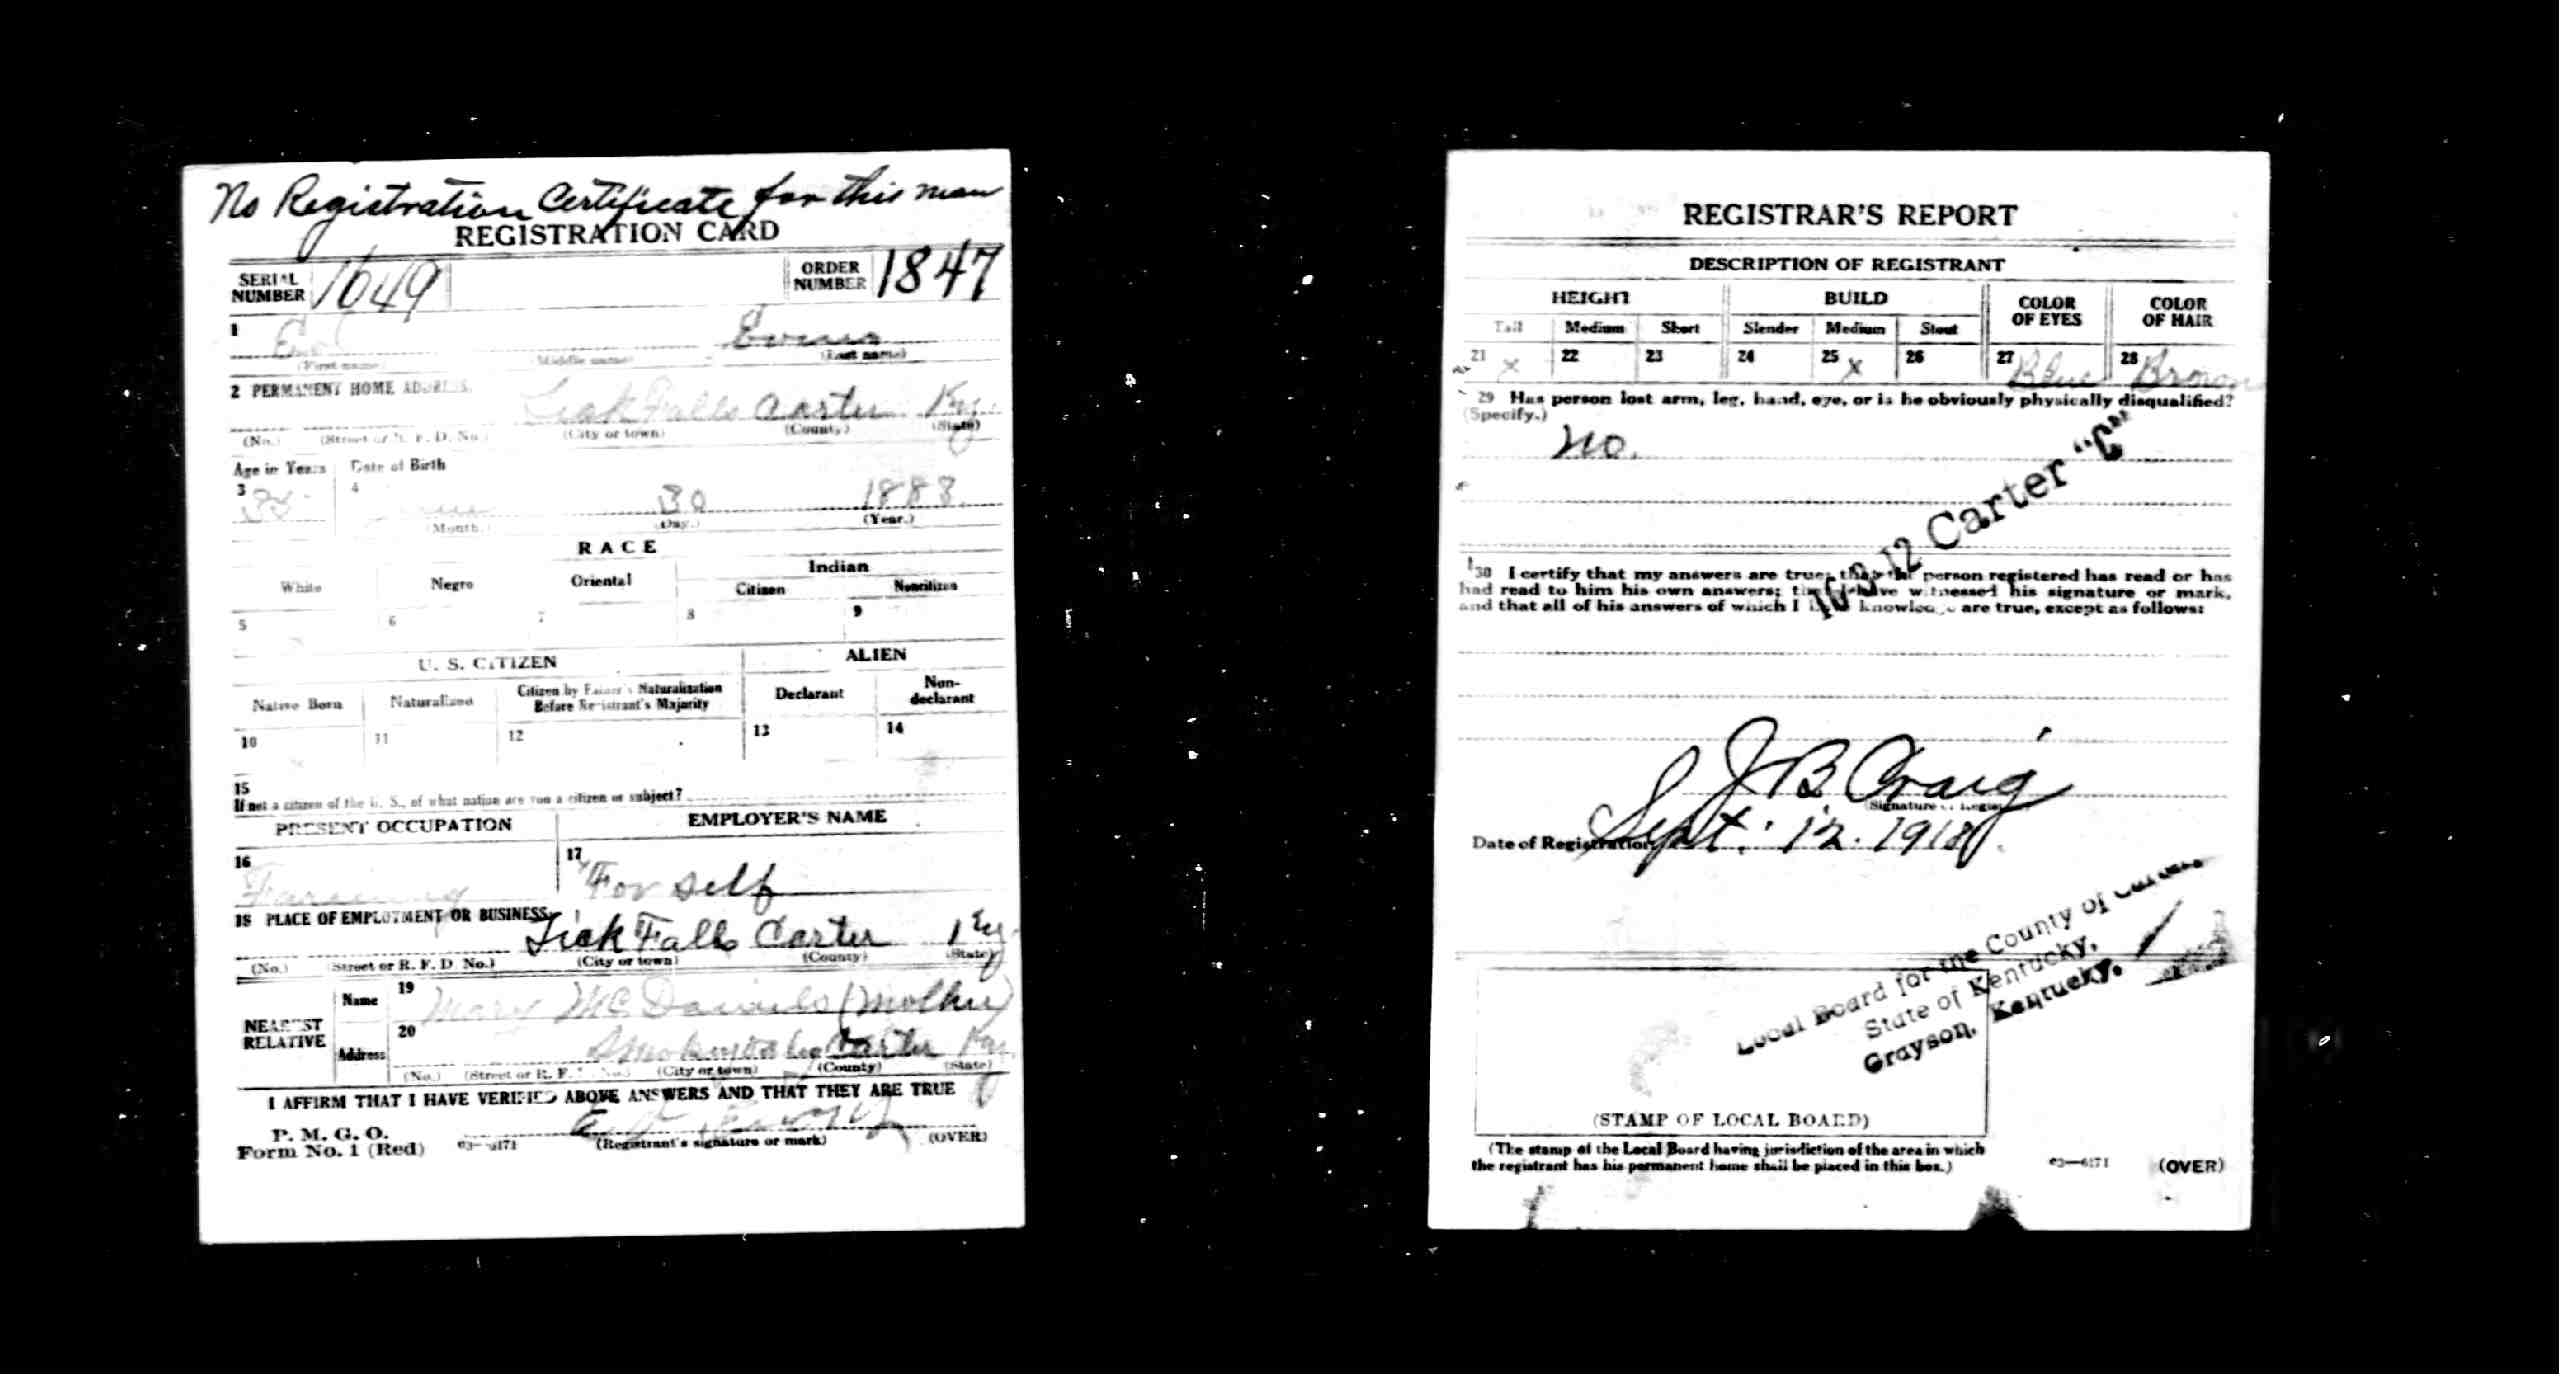 No Registration Certificate for this man
REGISTRATION CARD
SERIAL NUMBER 1649 ORDER NUMBER 1847
1
(First name) (Middle name) (Last name)
2 PERMANENT HOME ADDRESS.
Lick Falls Carter Ky.
(No.) (Street or R. F. D. No.) (City or town) (County) (State)
Age in Years Date of Birth
3 4 30 1883
(Month.) (Day.) (Year.)
RACE
White Negro Oriental Indian
Citizen Noncitizen
5 6 7 8 9
U. S. CITIZEN ALIEN
Native Born Naturalized Citizen by Father's Naturalization Before Registrant's Majority Declarant Non-declarant
10 11 12 13 14
x
15
If not a citizen of the U. S., of what nation are you a citizen or subject?
PRESENT OCCUPATION EMPLOYER'S NAME
16 17
Farming For self
18 PLACE OF EMPLOYMENT OR BUSINESS.
Lick Falls Carter Ky.
(No.) (Street or R. F. D. No.) (City or town) (County) (State)
NEAREST RELATIVE
Name 19 Mary McDaniels (Mother)
Address 20 Carter Ky.
(No.) (Street or R. F. D. No.) (City or town) (County) (State)
I AFFIRM THAT I HAVE VERIFIED ABOVE ANSWERS AND THAT THEY ARE TRUE
P. M. G. O.
Form No. 1 (Red) 03—6171 (Registrant's signature or mark) (OVER)
REGISTRAR'S REPORT
DESCRIPTION OF REGISTRANT
HEIGHT BUILD COLOR OF EYES COLOR OF HAIR
Tall Medium Short Slender Medium Stout
21 x 22 23 24 25 x 26 27 Blue 28 Brown
29 Has person lost arm, leg, hand, eye, or is he obviously physically disqualified?
(Specify.)
No.
16-3-12 Carter "C"
30 I certify that my answers are true; that the person registered has read or has
had read to him his own answers; that I have witnessed his signature or mark,
and that all of his answers of which I have knowledge are true, except as follows:
J B Craig
(Signature of Registrar)
Date of Registration Sept. 12. 1918.
Local Board for the County of Carter,
State of Kentucky,
Grayson, Kentucky.
(STAMP OF LOCAL BOARD)
(The stamp of the Local Board having jurisdiction of the area in which
the registrant has his permanent home shall be placed in this box.)
03—6171 (OVER)